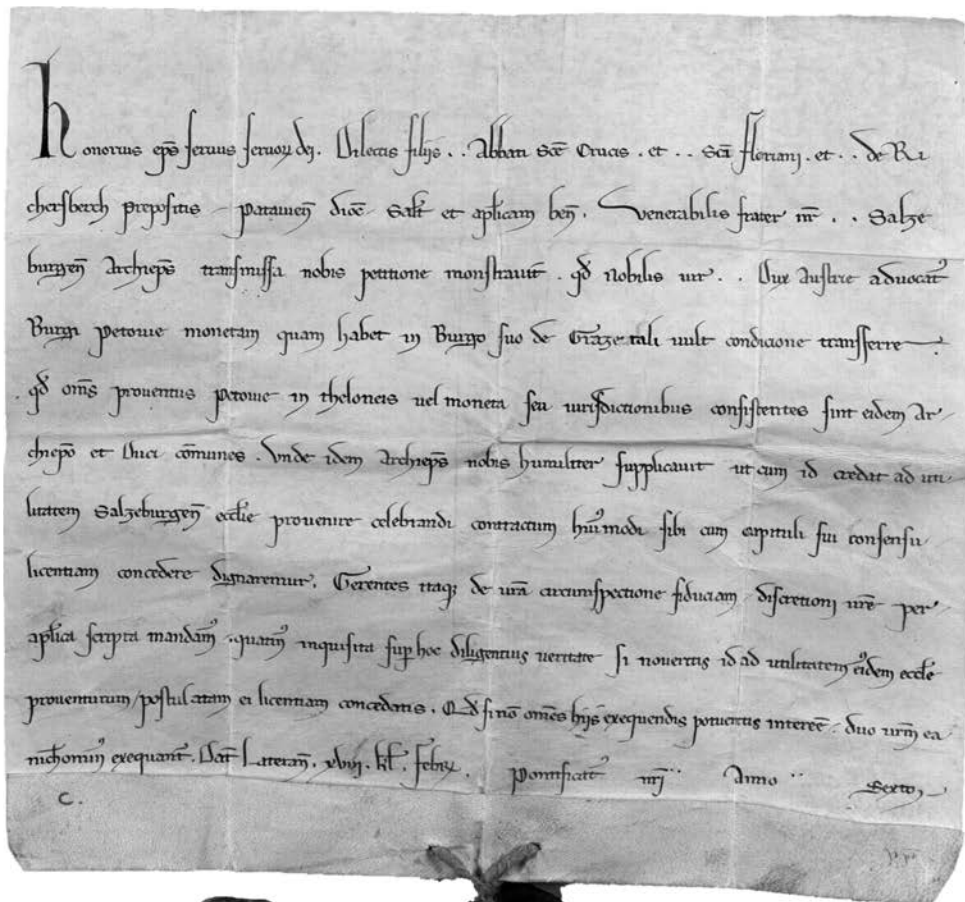 honorius ep̄s seruus seruoꝝ dej. Dilectis filijs . . Abbati Sc̄e Crucis . et . . Sc̄i florianj . et . . de Ri
chersberch prepositis Patauien̄ dioc̄ Sal̄t et apl̄icam ben̄ . Venerabilis frater nr̄ . . Salze
burgen̄ Archiep̄s transmissa nobis petitione monstrauit . qd̄ nobilis uir . . Dux Austrie aduocatꝰ
Burgi Petouie monetam quam habet in Burgo suo de Graze tali uult condicione transferre
qd̄ om̄s prouentus Petouie in theloneis uel moneta seu iurisdictionibus consistentes sint eidem Ar
chiep̄o et Duci cōmunes . Vnde idem Archiep̄s nobis humiliter supplicauit ut cum id credat ad uti
litatem Salzeburgen̄ eccl̄ie prouenire celebrandi contractum huiꝰmodi sibi cum capituli sui consensu
licentiam concedere dignaremur . Gerentes itaqꝫ de ur̄a circumspectione fiduciam discretionj ur̄e per
apl̄ica scripta mandamꝰ . quatinꝰ inquisita sup̄ hoc diligentius ueritate si noueritis id ad utilitatem eiꝰdem eccl̄e
prouenturum / postulatam ei licentiam concedatis . Qd̄ si nō om̄es hijs exequendis potueritis interēe . duo ur̄m ea
nichominꝰ exequant᷑ . Dat̄ Lateran̄ . xviij . kl̄ . febrꝝ . Pontificatꝰ nr̄j Anno Sexto
C.